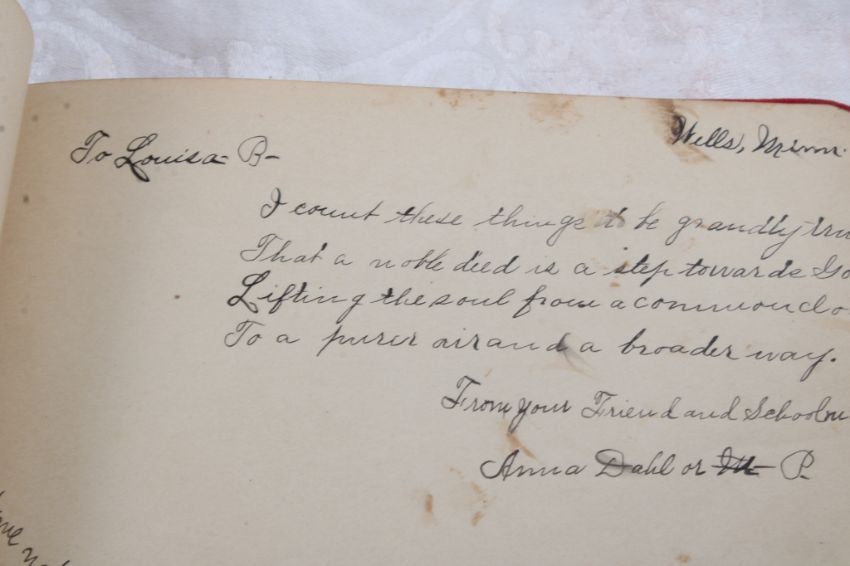 Wells, Minn.
To Louisa B-
I count these things to be grandly tru
That a noble deed is a step towards Go
Lifting the soul from a common clo
To a purer air and a broader way.
From your Friend and Schoolm
Anna Dahl or P.